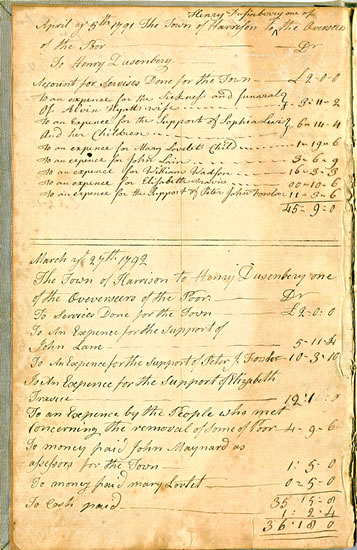 Henry Dusinbery one of
April ye 5th 1791 The Town of Harrison To the Overseers
of the Poor Dr
To Henry Dusenbery
Account for Services Done for the Town £2=0=0
To an expence for the Sickness and funeral
Of Alvin Hyatt wife 7=3=11=2
To an Expence for the Support of Sophia Lewis
And her Children 6=14=4
To an expence for Mary Lovlet Child 1=19=6
To an expence for John Lain 3=6=9
To an expence for William Hadson 16=3=3
To an expence for Elisabeth Travis 00=10=6
To an expence for the Support of Peter John Fowler 11=3=6
45=9=0
March ye 27th 1792
The Town of Harrison to Henry Dusenbery one
of the Oververseers of the Poor Dr
To Services Done for the Town £2=0=0
To An Expence for the Support of
John Lane 5=11=4
To An Expence for the Support of Peter J. Fowler 10=3=10
To An Expence for the Support of Elizabeth
Travice 12:1:0
To an Expence by the People who met
Concerning the removal of Some of Poor 4=9=6
To money paid John Maynard as
assessors for the Town 1:5:0
To money paid mary Lovlet 0=5=0
35 15=8
To Cash paid 1:2:4
36:18 0